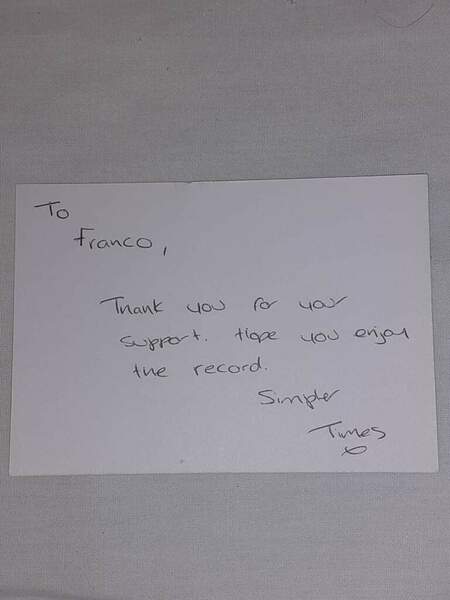 To
Franco,
Thank you for your
support. Hope you enjoy
the record.
Simpler
Times
x